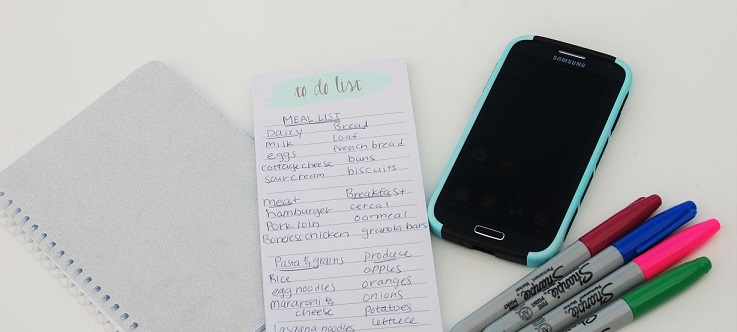 to do list
MEAL LIST
Dairy Bread
milk loaf
eggs french bread
cottage cheese buns
sour cream biscuits
meat Breakfast
hamburger cereal
Pork loin oatmeal
Boneless chicken granola bars
Pasta & grains Produce
Rice apples
egg noodles oranges
Macaroni & onions
cheese potatoes
Lasagna noodles lettuce
SAMSUNG
Sharpie
FINE POINT
Sharpie